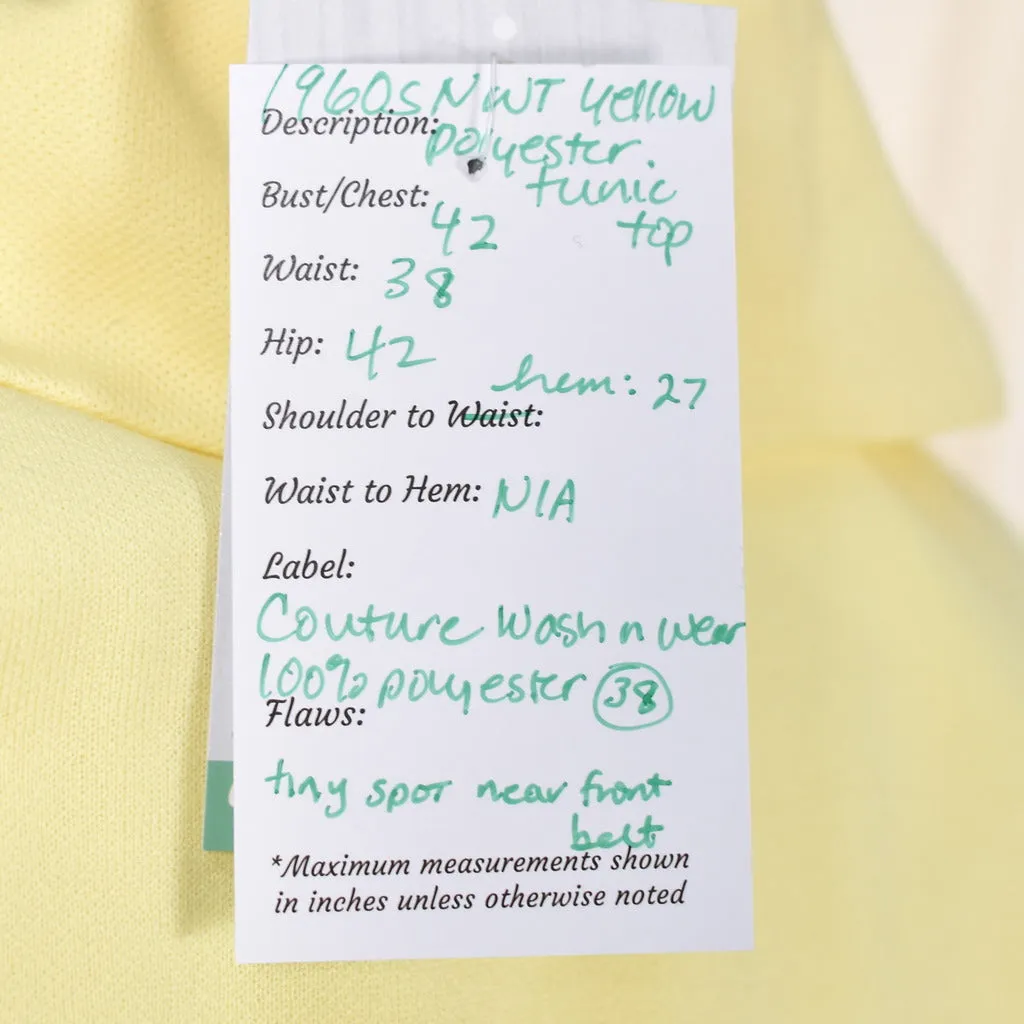 1960s NWT Yellow
Description: polyester.
Bust/Chest: tunic
42 top
Waist: 38
Hip: 42
hem: 27
Shoulder to Waist:
Waist to Hem: N/A
Label:
Couture Wash n wear
100% polyester 38
Flaws:
tiny spot near front
belt
*Maximum measurements shown
in inches unless otherwise noted